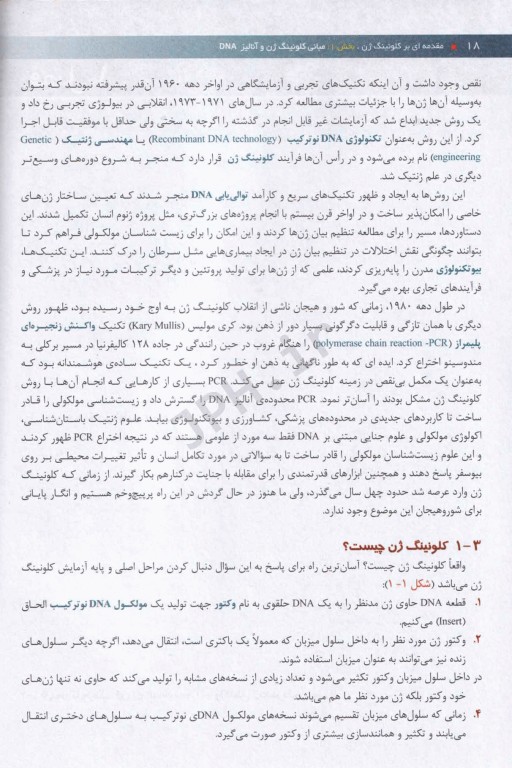 ۱۸ • مقدمه ای بر کلونینگ ژن ، بخش ۱: مبانی کلونینگ ژن و آنالیز DNA
نقص وجود داشت و آن اینکه تکنیک‌های تجربی و آزمایشگاهی در اواخر دهه ۱۹۶۰ آن‌قدر پیشرفته نبودند که بتوان
به‌وسیله آن‌ها ژن‌ها را با جزئیات بیشتری مطالعه کرد. در سال‌های ۱۹۷۱-۱۹۷۳، انقلابی در بیولوژی تجربی رخ داد و
یک روش جدید ابداع شد که آزمایشات غیر قابل انجام در گذشته را اگرچه به سختی ولی حداقل با موفقیت قابل اجرا
کرد. از این روش به‌عنوان تکنولوژی DNA نوترکیب (Recombinant DNA technology) یا مهندسی ژنتیک ( Genetic
engineering) نام برده می‌شود و در رأس آن‌ها فرآیند کلونینگ ژن قرار دارد که منجر به شروع دوره‌های وسیع‌تر
دیگری در علم ژنتیک شد.
این روش‌ها به ایجاد و ظهور تکنیک‌های سریع و کارآمد توالی‌یابی DNA منجر شدند که تعیین ساختار ژن‌های
خاصی را امکان‌پذیر ساخت و در اواخر قرن بیستم با انجام پروژه‌های بزرگ‌تری، مثل پروژه ژنوم انسان تکمیل شدند. این
دستاوردها، مسیر را برای مطالعه تنظیم بیان ژن‌ها کردند و این امکان را برای زیست شناسان مولکولی فراهم کرد تا
بتوانند چگونگی نقش اختلالات در تنظیم بیان ژن در ایجاد بیماری‌هایی مثل سرطان را درک کنند. این تکنیک‌ها،
بیوتکنولوژی مدرن را پایه‌ریزی کردند، علمی که از ژن‌ها برای تولید پروتئین و دیگر ترکیبات مورد نیاز در پزشکی و
فرآیندهای تجاری بهره می‌گیرد.
در طول دهه ۱۹۸۰، زمانی که شور و هیجان ناشی از انقلاب کلونینگ ژن به اوج خود رسیده بود، ظهور روش
دیگری با همان تازگی و قابلیت دگرگونی بسیار دور از ذهن بود. کری مولیس (Kary Mullis) تکنیک واکنش زنجیره‌ای
پلیمراز (polymerase chain reaction -PCR) را هنگام غروب در حین رانندگی در جاده ۱۲۸ کالیفرنیا در مسیر برکلی به
مندوسینو اختراع کرد. ایده ای که به طور ناگهانی به ذهن او خطور کرد ، یک تکنیک ساده‌ی هوشمندانه بود که
به‌عنوان یک مکمل بی‌نقص در زمینه کلونینگ ژن عمل می‌کند. PCR بسیاری از کارهایی که انجام آن‌ها با روش
کلونینگ ژن مشکل بودند را آسان‌تر نمود. PCR محدوده‌ی آنالیز DNA را گسترش داد و زیست‌شناسی مولکولی را قادر
ساخت تا کاربردهای جدیدی در محدوده‌های پزشکی، کشاورزی و بیوتکنولوژی بیابد. علوم ژنتیک باستان‌شناسی،
اکولوژی مولکولی و علوم جنایی مبتنی بر DNA فقط سه مورد از علومی هستند که در نتیجه اختراع PCR ظهور کردند
و این علوم زیست‌شناسان مولکولی را قادر ساخت تا به سؤالاتی در مورد تکامل انسان و تأثیر تغییرات محیطی بر روی
بیوسفر پاسخ دهند و همچنین ابزارهای قدرتمندی را برای مقابله با جنایت درکنارهم بکار گیرند. از زمانی که کلونینگ
ژن وارد عرصه شد حدود چهل سال می‌گذرد، ولی ما هنوز در حال گردش در این راه پرپیچ‌وخم هستیم و انگار پایانی
برای شوروهیجان این موضوع وجود ندارد.
۳-۱ کلونینگ ژن چیست؟
واقعاً کلونینگ ژن چیست؟ آسان‌ترین راه برای پاسخ به این سؤال دنبال کردن مراحل اصلی و پایه آزمایش کلونینگ
ژن می‌باشد (شکل ۱-۱):
۱. قطعه DNA حاوی ژن مدنظر را به یک DNA حلقوی به نام وکتور جهت تولید یک مولکول DNA نوترکیب الحاق
(Insert) می‌کنیم.
۲. وکتور ژن مورد نظر را به داخل سلول میزبان که معمولاً یک باکتری است، انتقال می‌دهد، اگرچه دیگر سلول‌های
زنده نیز می‌توانند به عنوان میزبان استفاده شوند.
در داخل سلول میزبان وکتور تکثیر می‌شود و تعداد زیادی از نسخه‌های مشابه را تولید می‌کند که حاوی نه تنها ژن‌های
خود وکتور بلکه ژن مورد نظر ما هم می‌باشد.
۴. زمانی که سلول‌های میزبان تقسیم می‌شوند نسخه‌های مولکول DNAی نوترکیب به سلول‌های دختری انتقال
می‌یابند و تکثیر و همانندسازی بیشتری از وکتور صورت می‌گیرد.